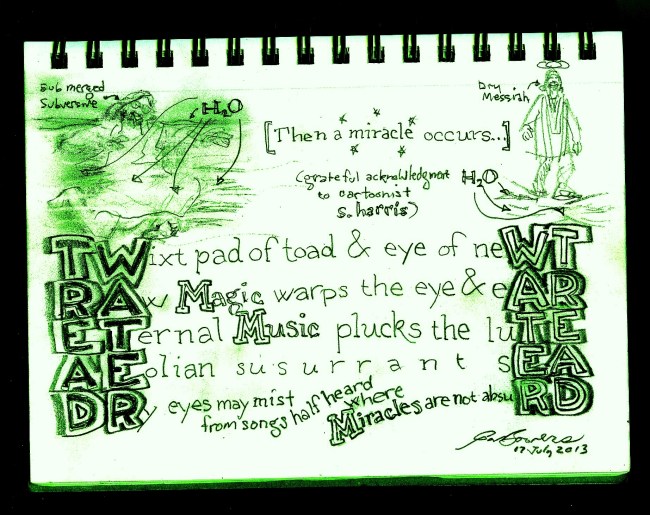 Submerged
Subversive
H2O
Dry
Messiah
[Then a miracle occurs...]
(grateful acknowledgment
to cartoonist
s. harris)
H2O
TWixt pad of toad & eye of neWT
RAw Magic warps the eye & eAR
ETernal Music plucks the luTE
AEolian susurrant sEA
DRy eyes may mist
from songs half heard
where
Miracles are not absuRD
17 July 2013